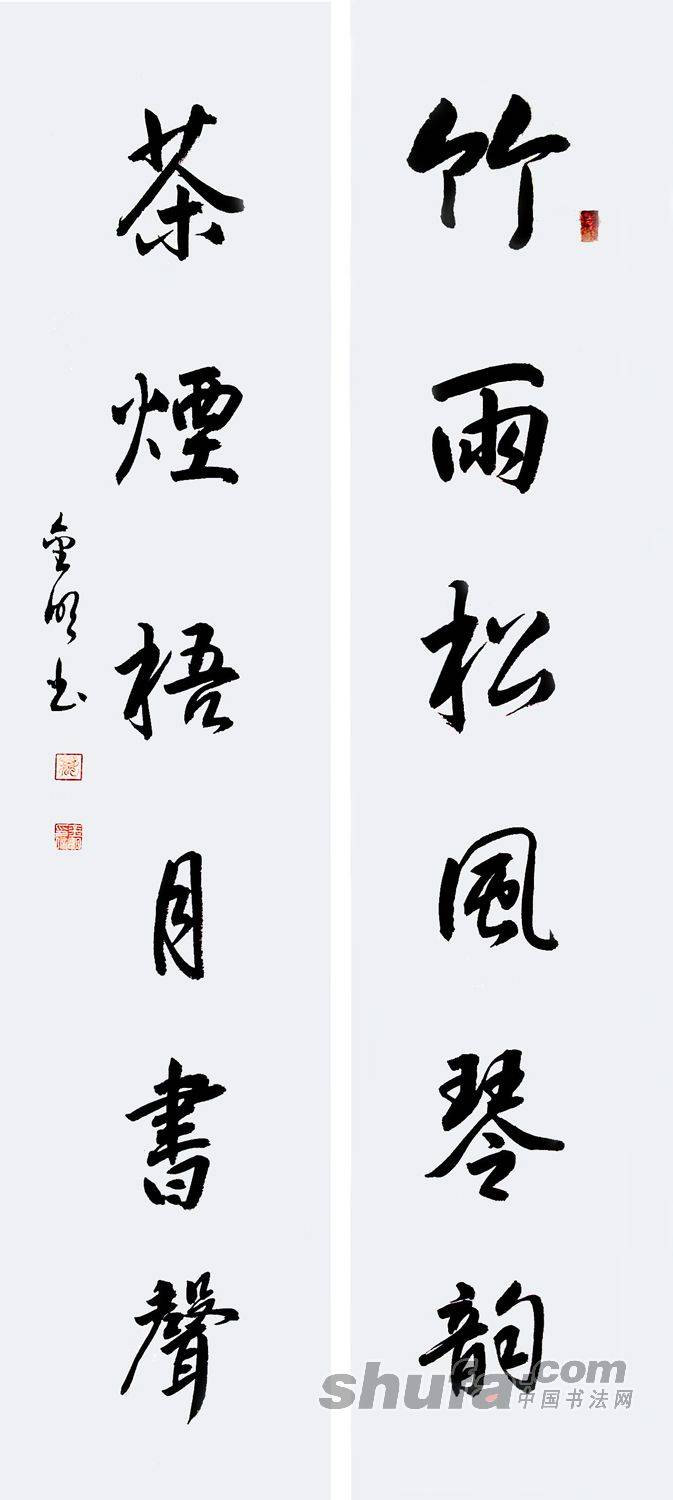 竹雨松風琴韵
茶煙梧月書聲
金明书
shufa.com
中国书法网